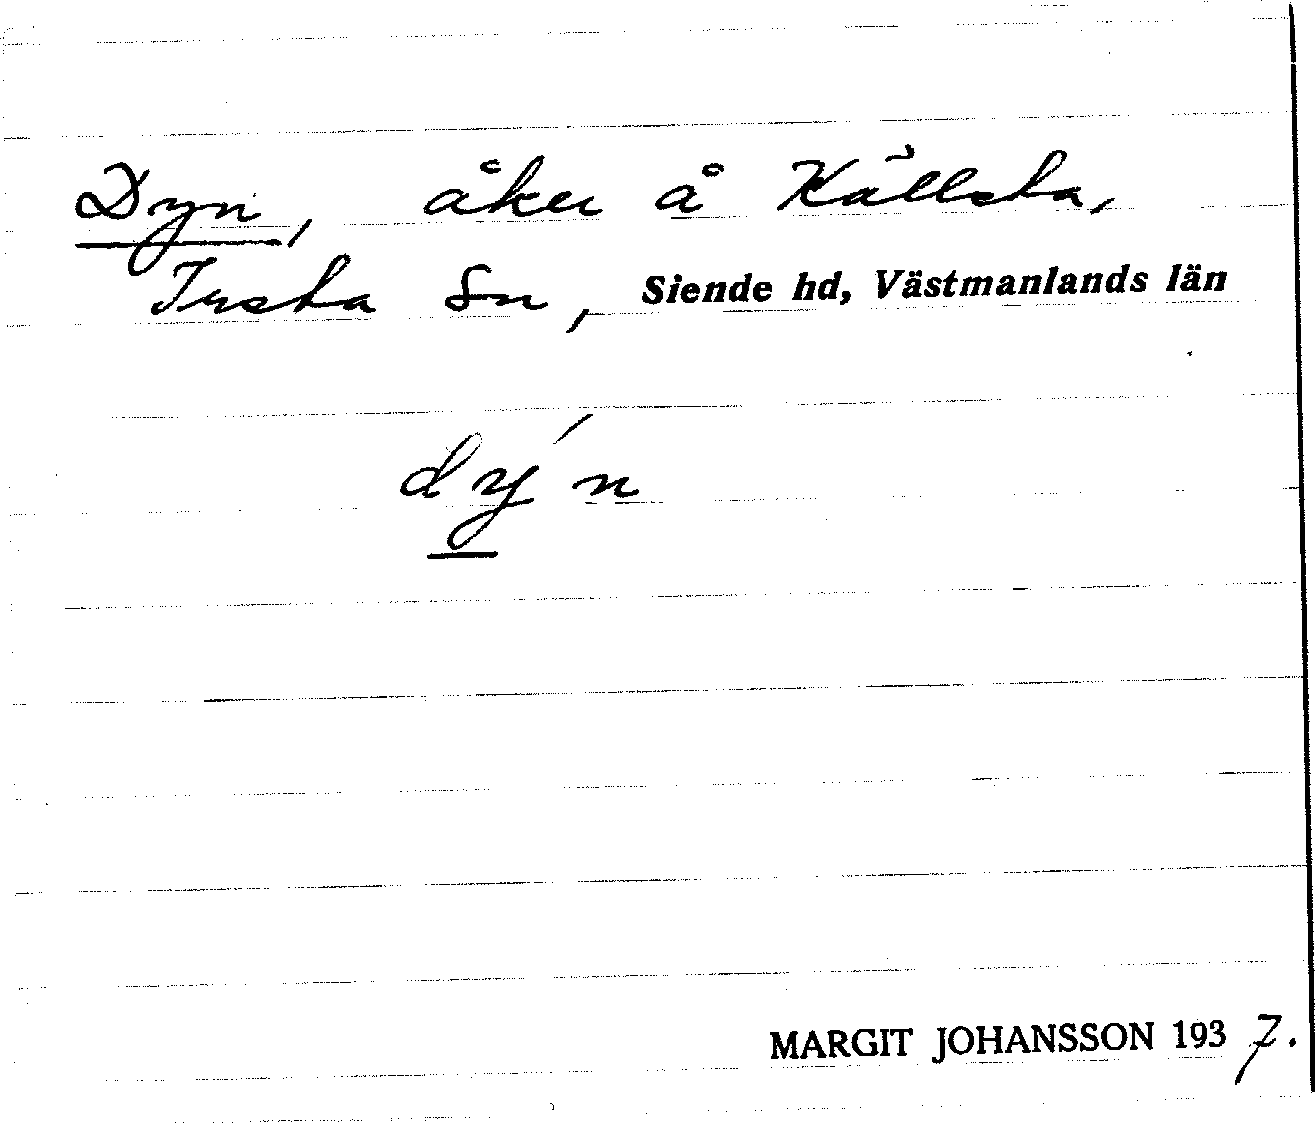 Dyn, åker å Källsta,
Irsta Sn, Siende hd, Västmanlands län
dy´n
MARGIT JOHANSSON 1937.